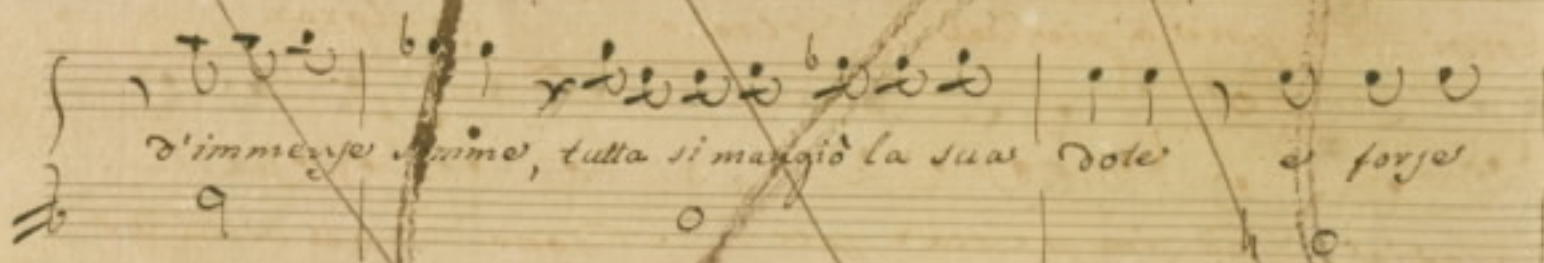 d'immense somme, tutta si mangiò la sua dote e forse